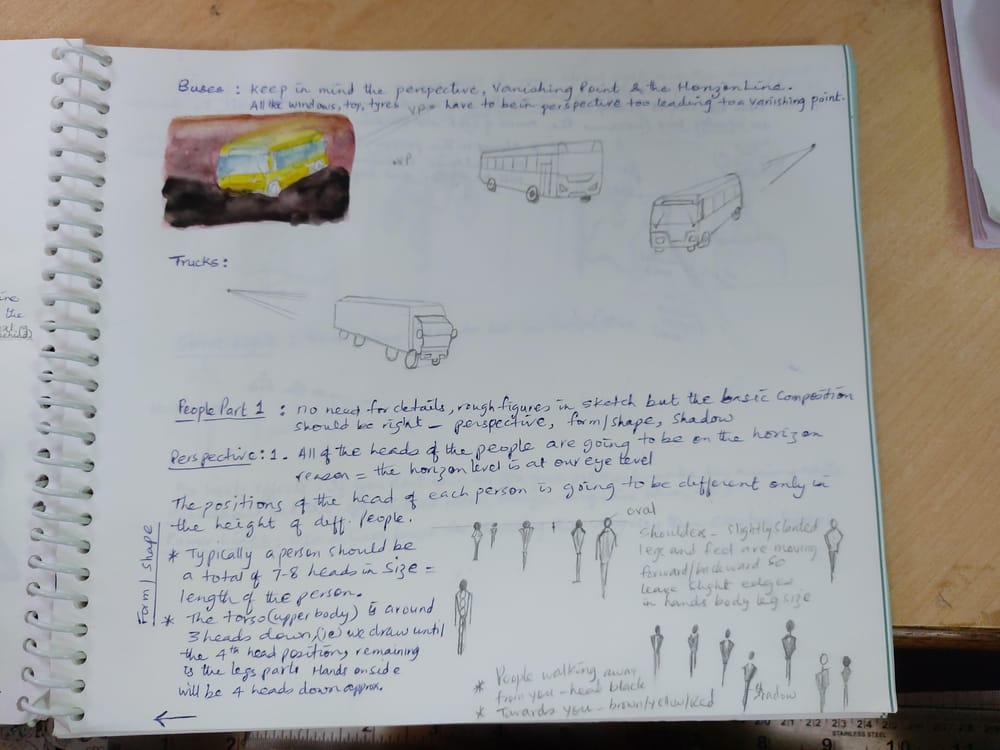 Buses : Keep in mind the perspective, Vanishing Point & the Horizon Line.
All the windows, top, tyres have to be in perspective too leading to a vanishing point.
VP
VP
Trucks:
People Part 1 : no need for details, rough figures in sketch but the basic composition
should be right - perspective, form/shape, shadow
Perspective: 1. All of the heads of the people are going to be on the horizon
reason = the horizon level is at our eye level
The positions of the head of each person is going to be different only in
the height of diff. People.
oval
Form/shape
* Typically a person should be
a total of 7-8 heads in size =
length of the person.
* The torso (upper body) is around
3 heads down, (ie) we draw until
the 4th head position, remaining
is the legs part. Hands on side
will be 4 heads down approx.
Shoulders - slightly slanted
legs and feet are moving
forward/backward so
leave slight edges
in hands body leg size
* People walking away
from you - head black
* Towards you - brown/yellow/red
Shadow
ine
the
STAINLESS STEEL
9
10